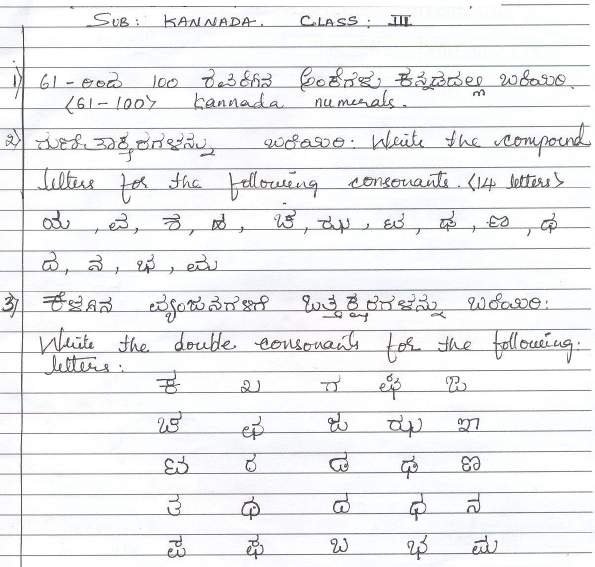 SUB: KANNADA. CLASS: III
1) 61 - ರಿಂದ 100 ರವರೆಗಿನ ಅಂಕೆಗಳು ಕನ್ನಡದಲ್ಲಿ ಬರೆಯಿರಿ.
<61-100> Kannada numerals.
2) ಗುಣಿತಾಕ್ಷರಗಳನ್ನು ಬರೆಯಿರಿ: Write the compound
letters for the following consonants. <14 letters>
ಯ, ವ, ಶ, ಹ, ಚ, ಝ, ಟ, ಢ, ಣ, ಥ
ದ, ನ, ಭ, ಮ
3) ಕೆಳಗಿನ ವ್ಯಂಜನಗಳಿಗೆ ಒತ್ತಕ್ಷರಗಳನ್ನು ಬರೆಯಿರಿ:
Write the double consonants for the following.
letters:
ಕ ಖ ಗ ಘ ಙ
ಚ ಛ ಜ ಝ ಞ
ಟ ಠ ಡ ಢ ಣ
ತ ಥ ದ ಧ ನ
ಪ ಫ ಬ ಭ ಮ